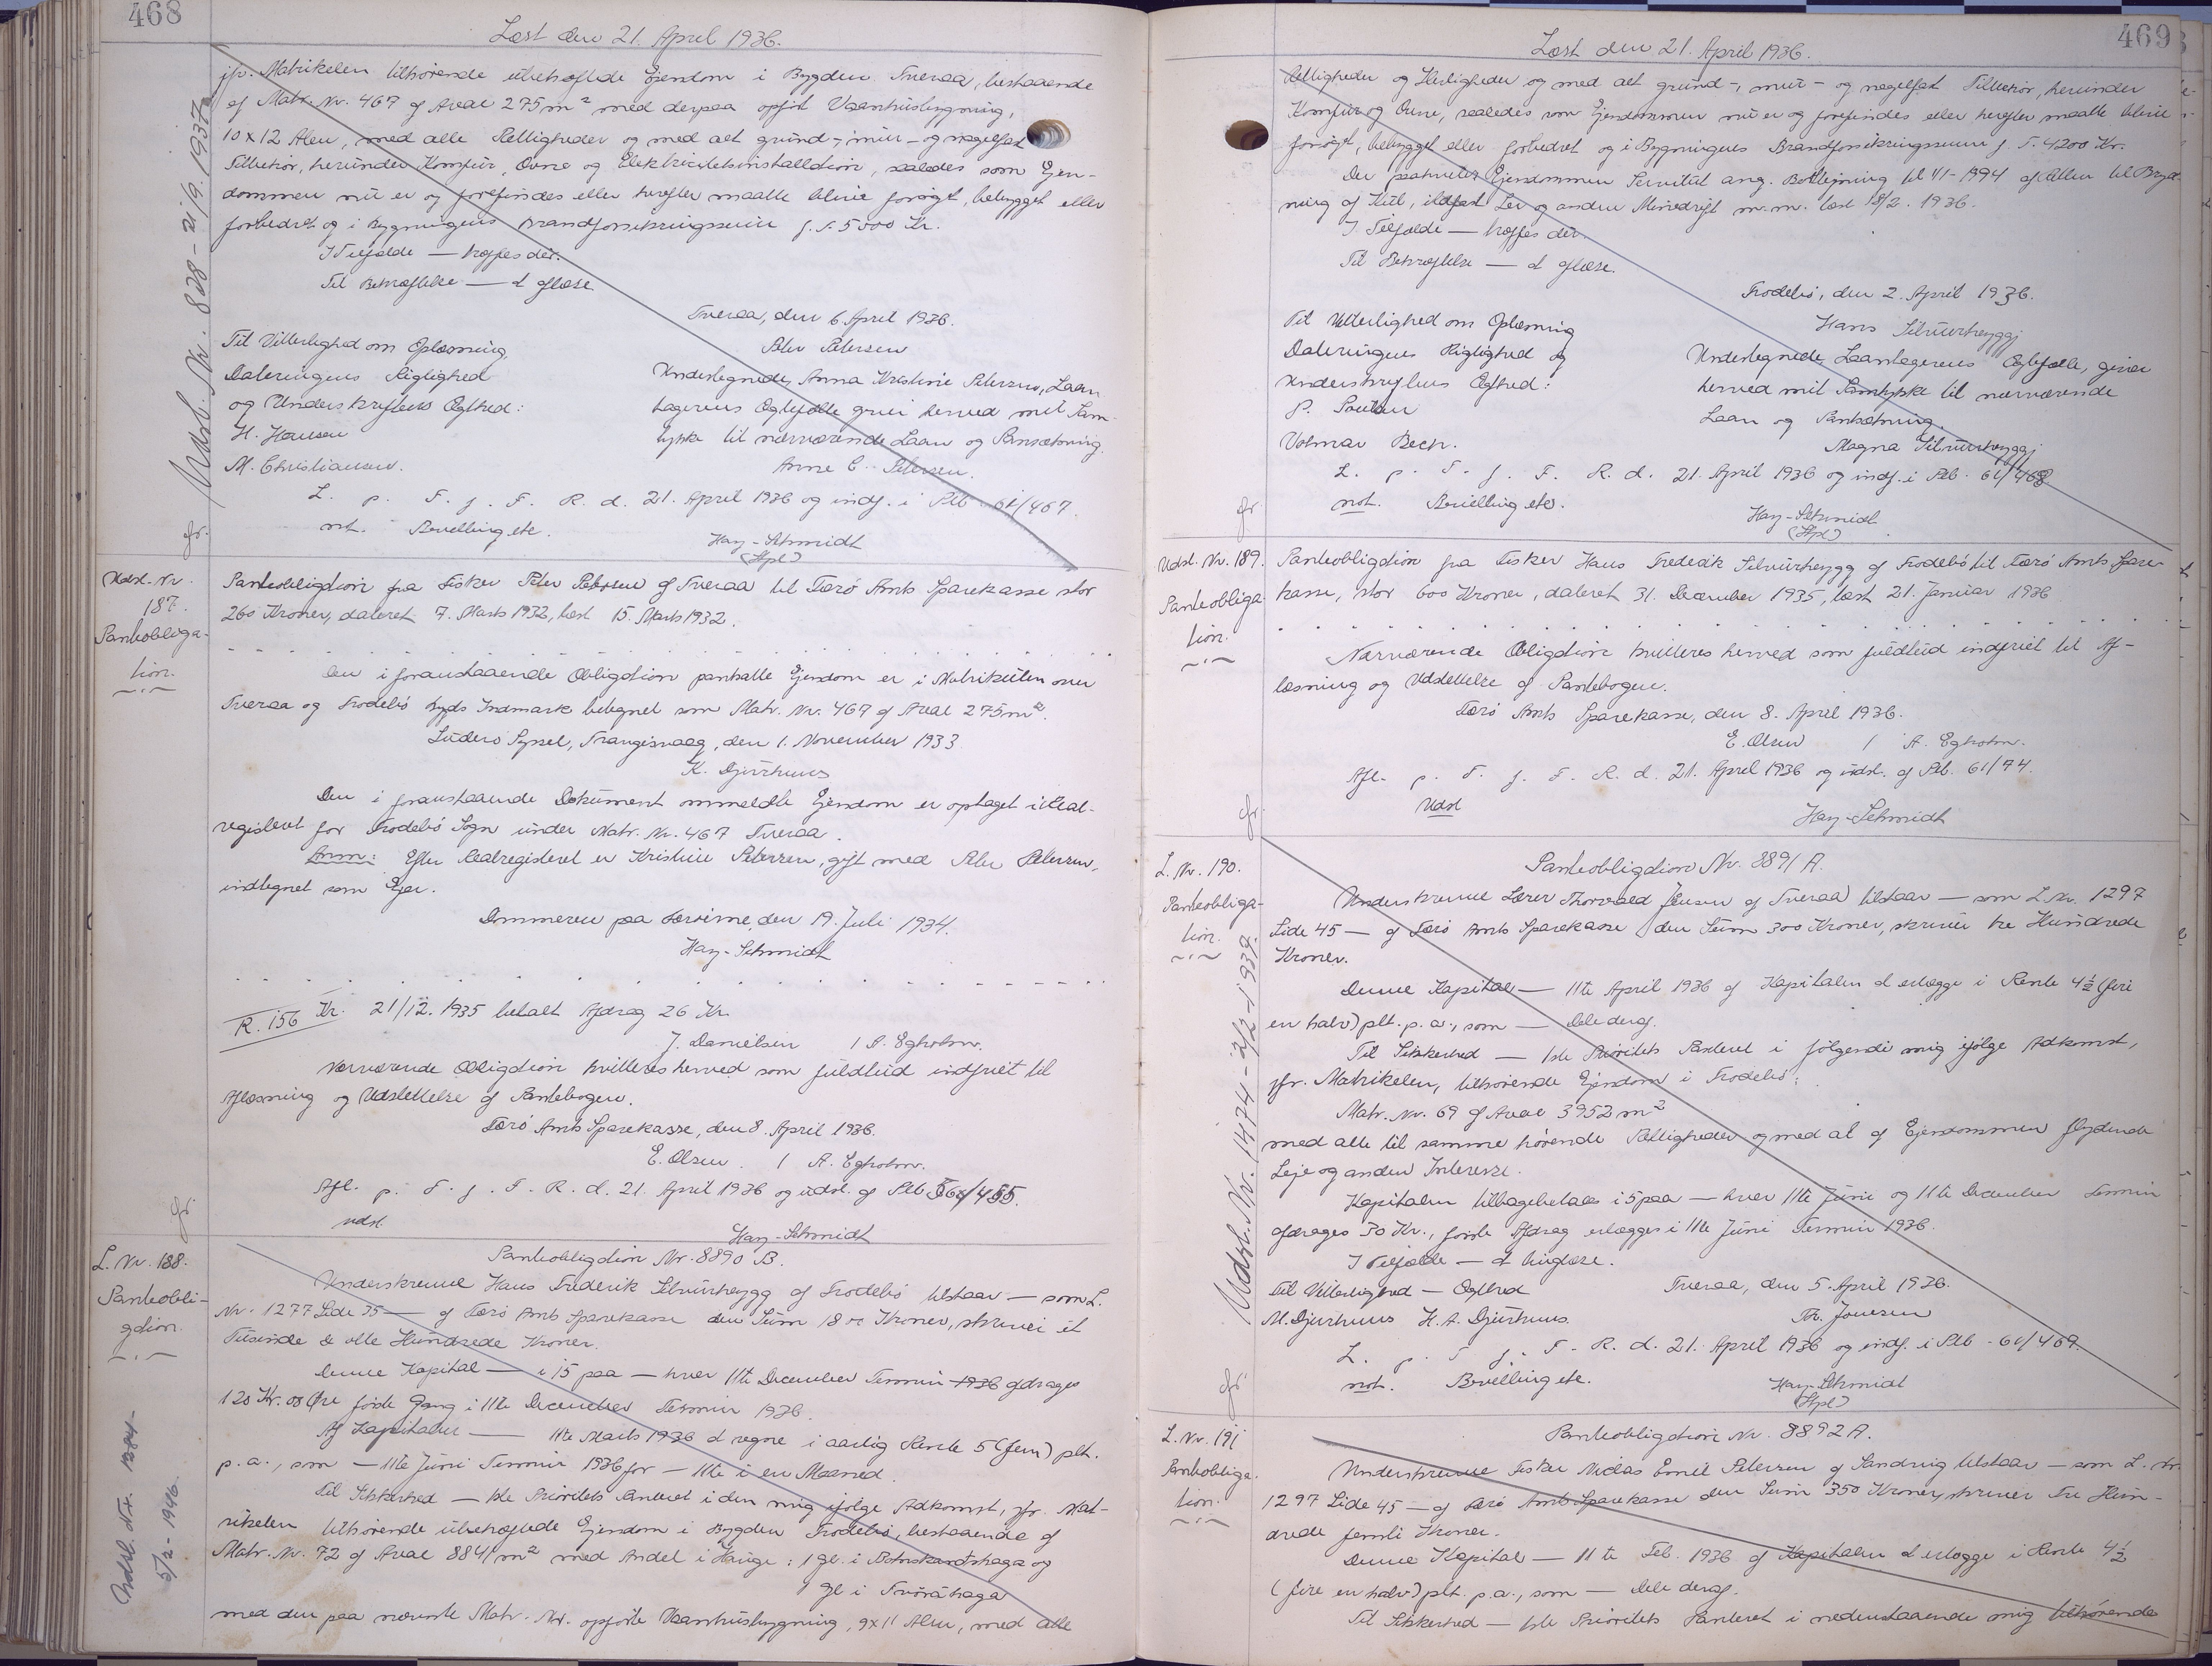 468
Læst den 21. April 1936.
jfr. Matrikelen tilhørende ubehæftede Ejendom i Bygden Tveraa, bestaaende
af Matr. Nr. 467 af Areal 275 m² med derpaa opført Vaaningsbygning,
10 x 12 Alen, med alle Rettigheder og med alt grund-, mur- og nagelfast
Tilbehør, herunder Komfur, Ovne og Elektricitetsinstallation, saaledes som Ejen-
dommen nu er og forefindes eller herefter maatte blive forøget, bebygget eller
forbedret og i Bygningens Brandforsikringssum f. T. 5500 Kr.
I Tilfælde — træffes der.
Til Bekræftelse — at aflæse.
Tveraa, den 6. April 1936.
Til Vitterlighed om Oplæsning,
Peter Petersen
Dateringens Rigtighed
Undertegnede, Anna Kristine Petersen, Laan
og Underskriftens Ægthed:
tagerens Ægtefælle giver herved mit Sam-
H. Hansen
tykke til nærværende Laan og Pantsætning.
M. Christiansen.
Anne C. Petersen.
L. p. T. f. F. R. d. 21. April 1936 og indf. i Ptb. 61/467.
not. Bevilling etc.
Hay-Schmidt
(Stpl)
gr.
Udsl. Nr. 828 - 21/9. 1937.
Udsl. Nr.
187.
Pantobliga-
tion.
Pantobligation fra Fisker Peter Petersen af Tveraa til Færø Amts Sparekasse stor
260 Kroner, dateret 7. Marts 1932, læst 15. Marts 1932.
Den i foranstaaende Obligation pantsatte Ejendom er i Matrikulen over
Tveraa og Frodebø Bygds Indmark betegnet som Matr. Nr. 467 af Areal 275 m².
Suderø Syssel, Trangisvaag, den 1. November 1933
K. Djurhuus
Den i foranstaaende Dokument ommeldte Ejendom er optaget i Real-
registeret for Frodebø Sogn under Matr. Nr. 467 Tveraa.
Anm: Efter Realregisteret er Kristine Petersen, gift med Peter Petersen,
indtegnet som Ejer.
Dommeren paa Færøerne, den 19. Juli 1934.
Hay-Schmidt
R. 156 Kr. 21/12. 1935 betalt Afdrag 26 Kr.
J. Danielsen / A. Egholm.
Nærværende Obligation kvitteres herved som fuldtud indfriet til
Aflæsning og Udslettelse af Pantebogen.
Færø Amts Sparekasse, den 8. April 1936.
E. Olsen / A. Egholm.
Afl. p. T. f. F. R. d. 21. April 1936 og udsl. af Ptb 56/455.
udsl.
Hay-Schmidt
gr
L. Nr. 188.
Pantobli-
gation.
Pantobligation Nr. 8890 B.
Underskrevne Hans Frederik Silvurheygg af Frodebø tilstaar — som L.
Nr. 1277 Side 35 — af Færø Amts Sparekasse den Sum 1800 Kroner, skriver et
Tusinde & otte Hundrede Kroner.
Denne Kapital — i 15 paa — hver 11te December Termin 1936 afdrages
120 Kr. 00 Øre første Gang i 11te December Termin 1936.
Af Kapitalen — 11te Marts 1936 at regne i aarlig Rente 5 (fem) pCt.
p. a., som — 11te Juni Termin 1936 for — 11te i en Maaned.
Til Sikkerhed — 1ste Prioritets Panteret i den mig ifølge Adkomst, jfr. Mat-
rikelen tilhørende ubehæftede Ejendom i Bygden Frodebø, bestaaende af
Matr. Nr. 72 af Areal 884 m² med Andel i Hauge: 1 gl. i Botnskardshaga og
1 gl i Tvørahaga
med den paa nævnte Matr. Nr. opførte Vaaningsbygning, 9 x 11 Alen, med alle
Udsl. Nr. 1384 -
5/2 - 1946.
469
Læst den 21. April 1936.
Rettigheder og Herligheder og med alt grund-, mur- og nagelfast Tilbehør, herunder
Komfur og Ovne, saaledes som Ejendommen nu er og forefindes eller herefter maatte blive
forøget, bebygget eller forbedret og i Bygningens Brandforsikringssum f. T. 4200 Kr.
Der paahviler Ejendommen Servitut ang. Bortlejning til 1/1-1994 af Retten til Bryd-
ning af Kul, ildfast Ler og anden Minedrift m.m. læst 18/2. 1936.
I Tilfælde — træffes der.
Til Bekræftelse — at aflæse.
Frodebø, den 2. April 1936.
Til Vitterlighed om Oplæsning
Hans Silvurheygg
Dateringens Rigtighed og
Undertegnede, Laantagerens Ægtefælle, giver
Underskriftens Ægthed:
herved mit Samtykke til nærværende
P. Poulsen
Laan og Pantsætning.
Volmar Bech.
Magna Silvurheygg
L. p. T. f. F. R. d. 21. April 1936 og indf. i Ptb. 61/468
not. Bevilling etc.
Hay-Schmidt
(Stpl)
gr
Udsl. Nr. 189.
Pantobliga-
tion.
Pantobligation fra Fisker Hans Frederik Silvurheygg af Frodebø til Færø Amts Spare-
kasse, stor 600 Kroner, dateret 31. December 1935, læst 21. Januar 1936
Nærværende Obligation kvitteres herved som fuldtud indfriet til Af-
læsning og Udslettelse af Pantebogen.
Færø Amts Sparekasse, den 8. April 1936.
E. Olsen / A. Egholm.
Afl. p. T. f. F. R. d. 21. April 1936 og udsl. af Ptb. 61/74.
Udsl
Hay-Schmidt
gr
L. Nr. 190.
Pantobliga-
tion.
Pantobligation Nr. 8891 A.
Underskrevne Lærer Thorvald Joensen af Tveraa tilstaar — som L. Nr. 1297
Side 45 — af Færø Amts Sparekasse den Sum 300 Kroner, skriver tre Hundrede
Kroner.
Denne Kapital — 11te April 1936 af Kapitalen at erlægge i Rente 4½ (fire
en halv) pCt. p. a., som — Dele deraf.
Til Sikkerhed — 1ste Prioritets Panteret i følgende mig ifølge Adkomst,
jfr. Matrikelen, tilhørende Ejendom i Frodebø:
Matr. Nr. 69 af Areal 3952 m²
med alle til samme hørende Rettigheder og med al af Ejendommen flydende
Leje og anden Interesse.
Kapitalen tilbagebetales i 5 paa — hver 11te Juni og 11te December Termin
afdrages 30 Kr., første Afdrag erlægges i 11te Juni Termin 1936.
I Tilfælde — at tinglæse.
Til Vitterlighed — Ægthed
Tveraa, den 5. April 1936.
M. Djurhuus H. A. Djurhuus.
Th. Joensen
L. p. T. f. F. R. d. 21. April 1936 og indf. i Ptb - 61/469.
not. Bevilling etc.
Hay-Schmidt
(Stpl)
gr
L. Nr. 191
Pantobliga-
tion.
Pantobligation Nr. 8892 A.
Underskrevne Fisker Niclas Emil Petersen af Sandvig tilstaar — som L. Nr.
1297 Side 45 — af Færø Amts Sparekasse den Sum 350 Kroner, skriver Tre Hun-
drede femti Kroner.
Denne Kapital — 11te Feb. 1936 af Kapitalen at erlægge i Rente 4½
(fire en halv) pCt. p. a., som — Dele deraf.
Til Sikkerhed — 1ste Prioritets Panteret i nedenstaaende mig tilhørende